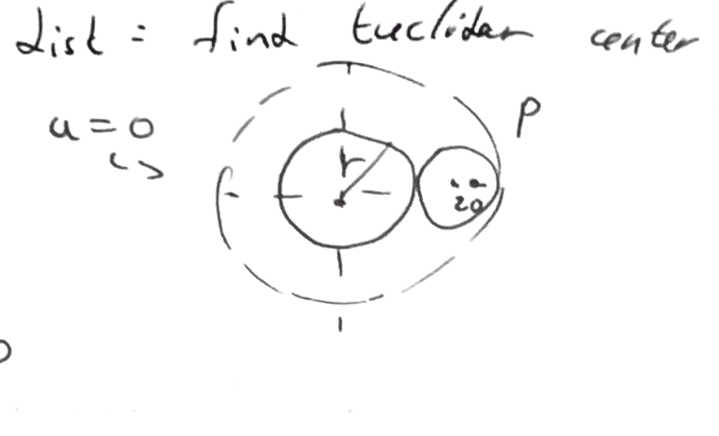 dist = find Euclidean center
u = 0
P
r
20